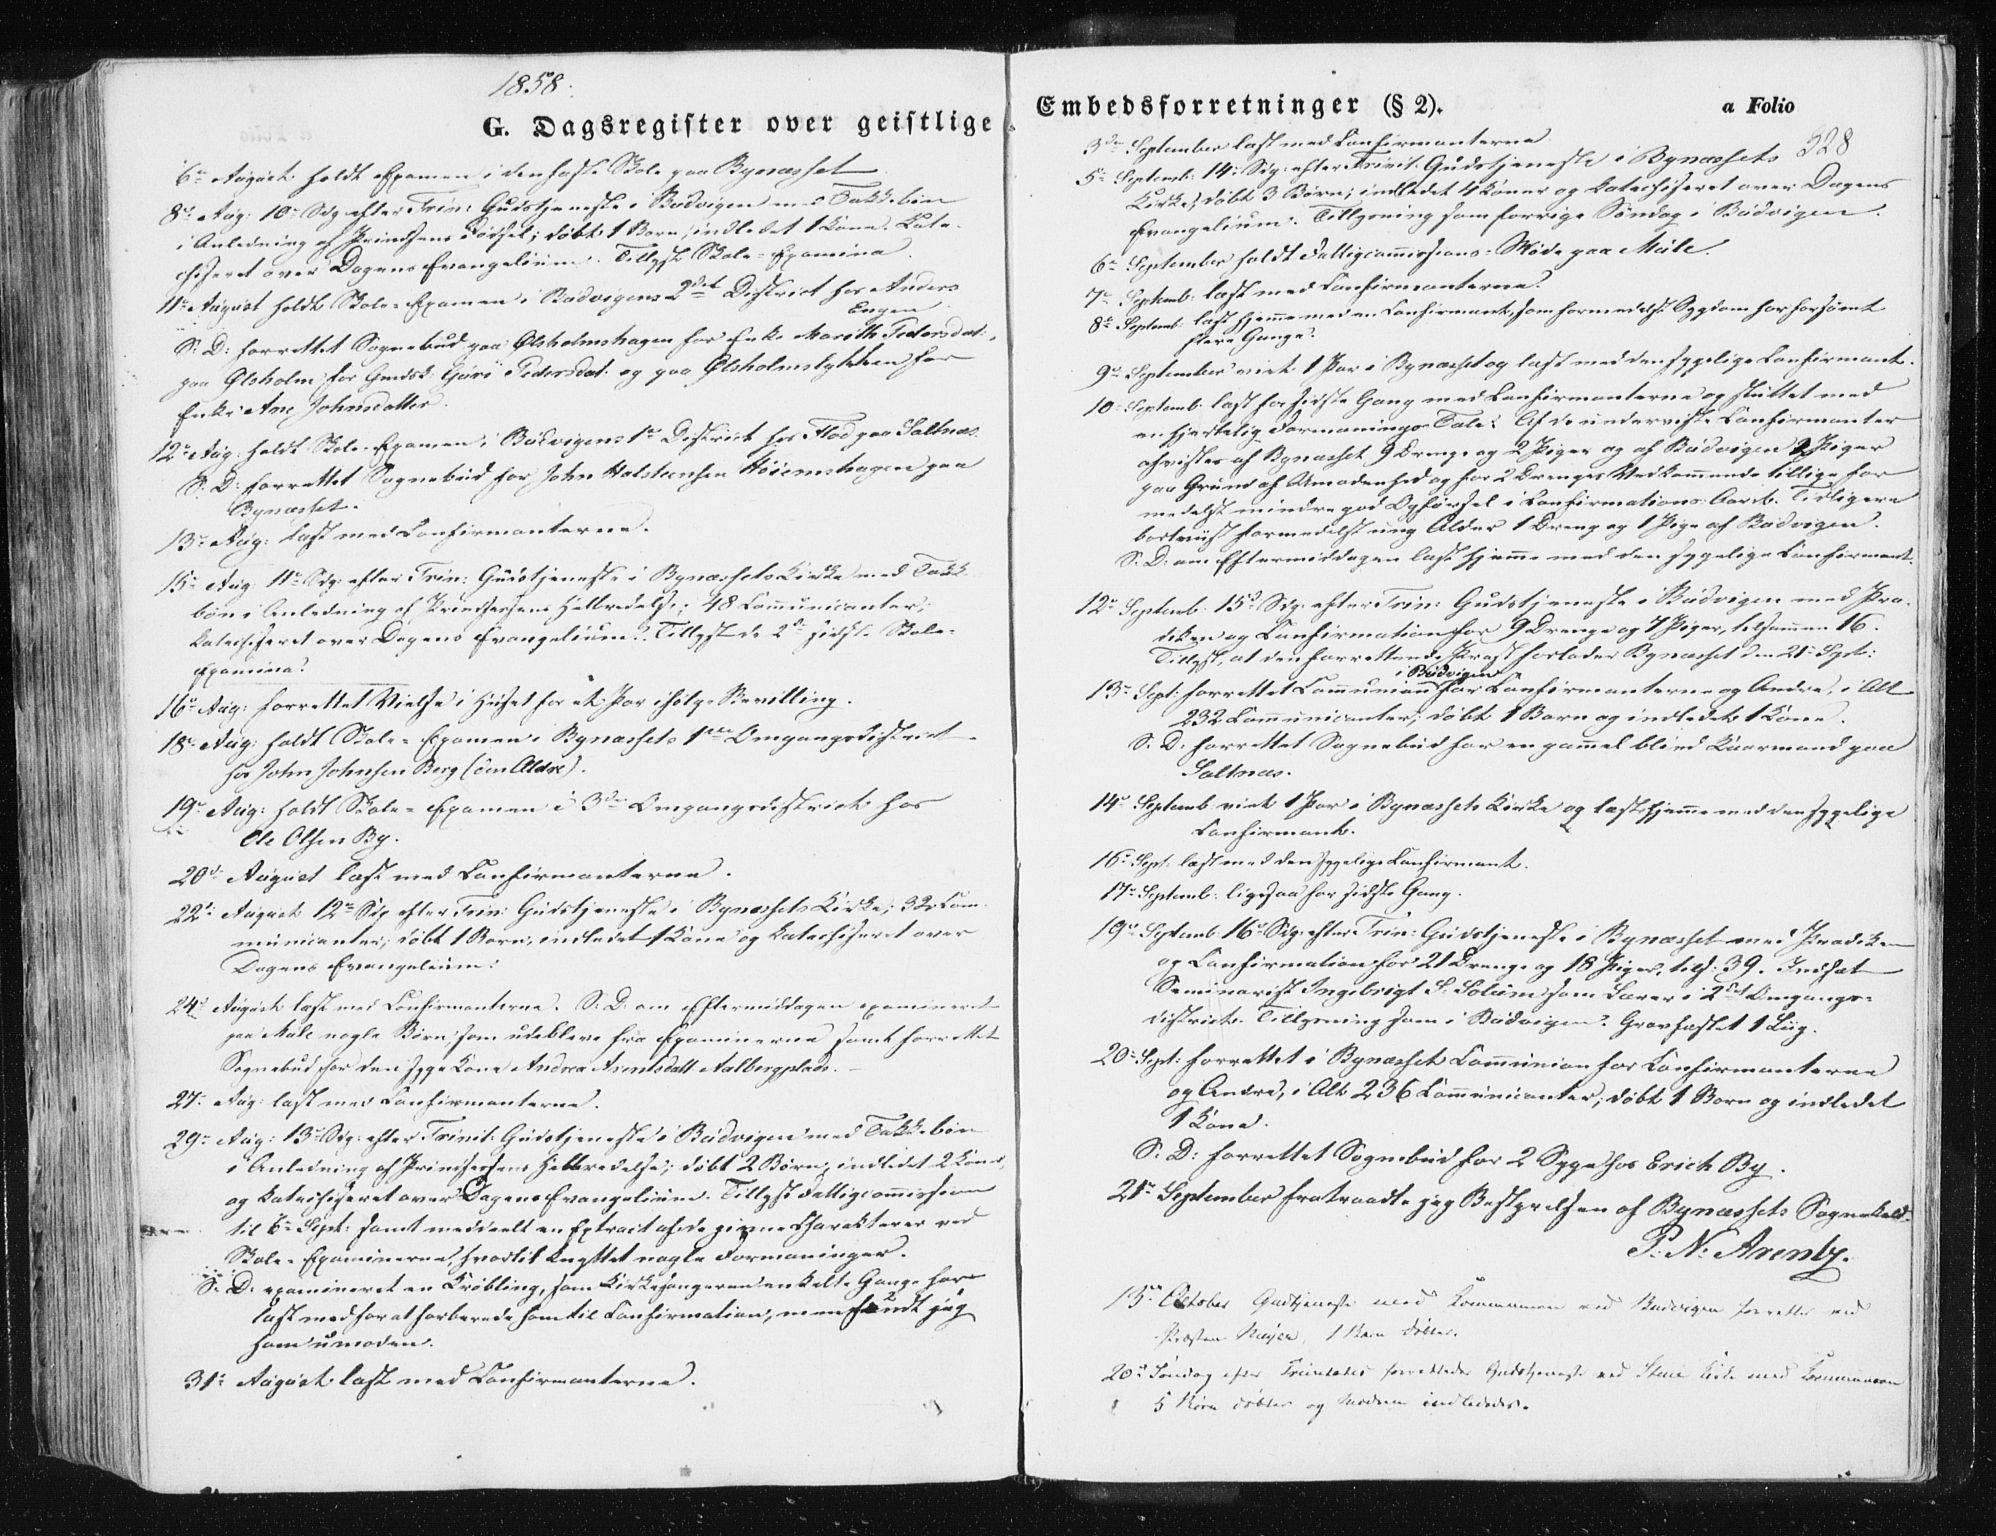 1858.
G. Dagsregister over geistlige
6te August holdt Examen i den faste Skole paa Bynæsset
8de Aug: 10de Sdg: efter Trin: Gudstjeneste i Budvigen med Takkebøn
i Anledning af Prindsens Fødsel; døbt 1 Barn, indledet 1 Kone. Kate-
chiseret over Dagens Evangelium. Tillyst Skole-Examina.
11te August holdt Skole-Examen i Budvigens 2det District hos Anders
Engen
S: D: forrettet Sognebud paa Ølsholmshagen for Enke Marith Pedersdat:,
paa Ølsholm for Guri Pedersdat: og paa Ølsholmslykken for
Enke Ane Johnsdatter.
12te Aug: holdt Skole-Examen i Budvigens 1ste District hos Flod paa Saltnæs.
S: D: forrettet Sognebud for John Halstensen Høiemshagen paa
Bynæsset.
13de Aug: læst med Confirmanterne.
15de Aug: 11te Sdg: efter Trin: Gudstjeneste i Bynæssets Kirke med Takke-
bøn i Anledning af Prindsessens Helbredelse; 48 Communicanter;
katechiseret over Dagens Evangelium. Tillyst de 2de sidste Skole-
Examina.
16de Aug: forrettet Vielse i Huset for et Par ifølge Bevilling.
18de Aug: holdt Skole-Examen i Bynæssets 1ste Omgangsdistrict
hos John Johnsen Berg (den Ældre).
19de Aug: holdt Skole-Examen i 3die Omgangsdistrict hos
Ole Olsen By.
20de August læst med Confirmanterne.
22de August 12te Sdg efter Trin: Gudstjeneste i Bynæssets Kirke; 32 Com-
municanter; døbt 1 Barn, indledet 1 Kone og katechiseret over
Dagens Evangelium.
24de August læst med Confirmanterne. S: D: om Eftermiddagen examineret
paa Mule nogle Børn, som udebleve fra Examinerne samt forrettet
Sognebud for den syge Kone Andrea Arentsdatt. Aalbergplads.
27de Aug: læst med Confirmanterne.
29de Aug: 13de Sdg: efter Trinit: Gudstjeneste i Budvigen med Takkebøn
i Anledning af Prindsessens Helbredelse; døbt 2 Børn, indledet 2 Koner,
og katechiseret over Dagens Evangelium. Tillyst Fattigcommission
til 6te Sept: samt meddeelt en Extract af de givne Charakterer ved
Skole-Examinerne, hvortil knyttet nogle Formaninger.
S: D: examineret en Krøbling, som Kirkesangeren enkelte Gange har
læst med for at forberede ham til Confirmation, men fandt jeg
ham umoden.
31te August læst med Confirmanterne.
Embedsforretninger (§ 2).
a Folio
328
3die September læst med Confirmanterne
5te Septemb: 14de Sdg: efter Trinit: Gudstjeneste i Bynæssets
Kirke; døbt 3 Børn; indledet 4 Koner og katechiseret over Dagens
Evangelium. Tillysning som forrige Søndag i Budvigen.
6te September holdt Fattigcommissions-Møde paa Mule.
7de Septemb: læst med Confirmanterne.
8de Septemb: læst hjemme med en Confirmant, som formedelst Sygdom har forsømt
flere Gange.
9de September viet 1 Par i Bynæsset og læst med den sygelige Confirmant.
10de Septemb: læst for sidste Gang med Confirmanterne og sluttet med
en hjertelig Formanings-Tale. Af de underviste Confirmanter
afvistes af Bynæsset 9 Drenge og 2 Piger og af Budvigen 2 Piger
paa Grund af Umodenhed og for 2 Drenges Vedkommende tillige for-
medelst mindre god Opførsel i Confirmations-Aaret. Tidligere
bortviist formedelst ung Alder 1 Dreng og 1 Pige af Budvigen.
S: D: om Eftermiddagen læst hjemme med den sygelige Confirmant.
12te Septemb: 15de Sdg: efter Trin: Gudstjeneste i Budvigen med Præ-
diken og Confirmation for 9 Drenge og 7 Piger, tilsammen 16.
Tillyst, at den forrettende Præst forlader Bynæsset den 21de Sept:
i Budvigen
13de Sept: forrettet Communion for Confirmanterne og Andre, i Alt
232 Communicanter; døbt 1 Barn og indledet 1 Kone.
S: D: forrettet Sognebud for en gammel blind Kaarmand paa
Saltnæs.
14de Septemb: viet 1 Par i Bynæssets Kirke og læst hjemme med den sygelige
Confirmant.
16de Sept: læst med den sygelige Confirmant.
17de Septemb: ligesaa for sidste Gang.
19de Septemb: 16de Sdg: efter Trin: Gudstjeneste i Bynæsset med Prædiken
og Confirmation for 21 Drenge og 18 Piger, tils: 39. Indsat
Seminarist Ingebrigt S. Solum som Lærer i 2det Omgangs-
district. Tillysning som i Budvigen. Gravfæstet 1 Liig.
20de Sept: forrettet i Bynæsset Communion for Confirmanterne
og Andre, i Alt 236 Communicanter; døbt 1 Barn og indledet
1 Kone.
S: D: forrettet Sognebud for 2 Syge hos Erich By.
21de September fratraadte jeg Bestyrelsen af Bynæssets Sognekald.
P. N. Arentz.
15de October Gudtjeneste med Kommunion ved Budvigen forrettet ved
Præsten 1 Barn døbtes.
20de Søndag efter Trinitatis forrettedes Gudstjeneste ved Stene Kirke med Kommunion
5 Børn døbtes og Mødrene indlededes.